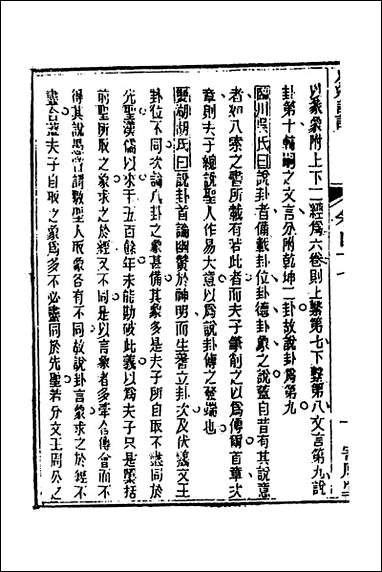 以彖象附上下二經爲六卷則上繫第七下繫第八文言第九說
卦第十輔嗣之文言分附乾坤二卦故說卦爲第九
臨川吳氏曰說卦者備載卦位卦德卦象之說蓋自昔有其說意
者如八索之書所載有若此者而夫子筆削之以爲傳爾首章次
章則夫子總說聖人作易大意以爲說卦傳之發端也
雙湖胡氏曰說卦首論幽贊於神明而生蓍立卦次及伏羲文王
卦位不同次論八卦之象甚備其象多是夫子所自取不盡同於
先聖漢儒以來千五百餘年未能勘破此義以爲夫子只是櫽括
前聖所取之象求之於經又不同是以言象者多牽合傅會而不
得其說愚嘗謂數聖人取象各有不同故說卦言象求之於經不
盡合蓋夫子自取之象爲多不必盡同於先聖若分文王周公之